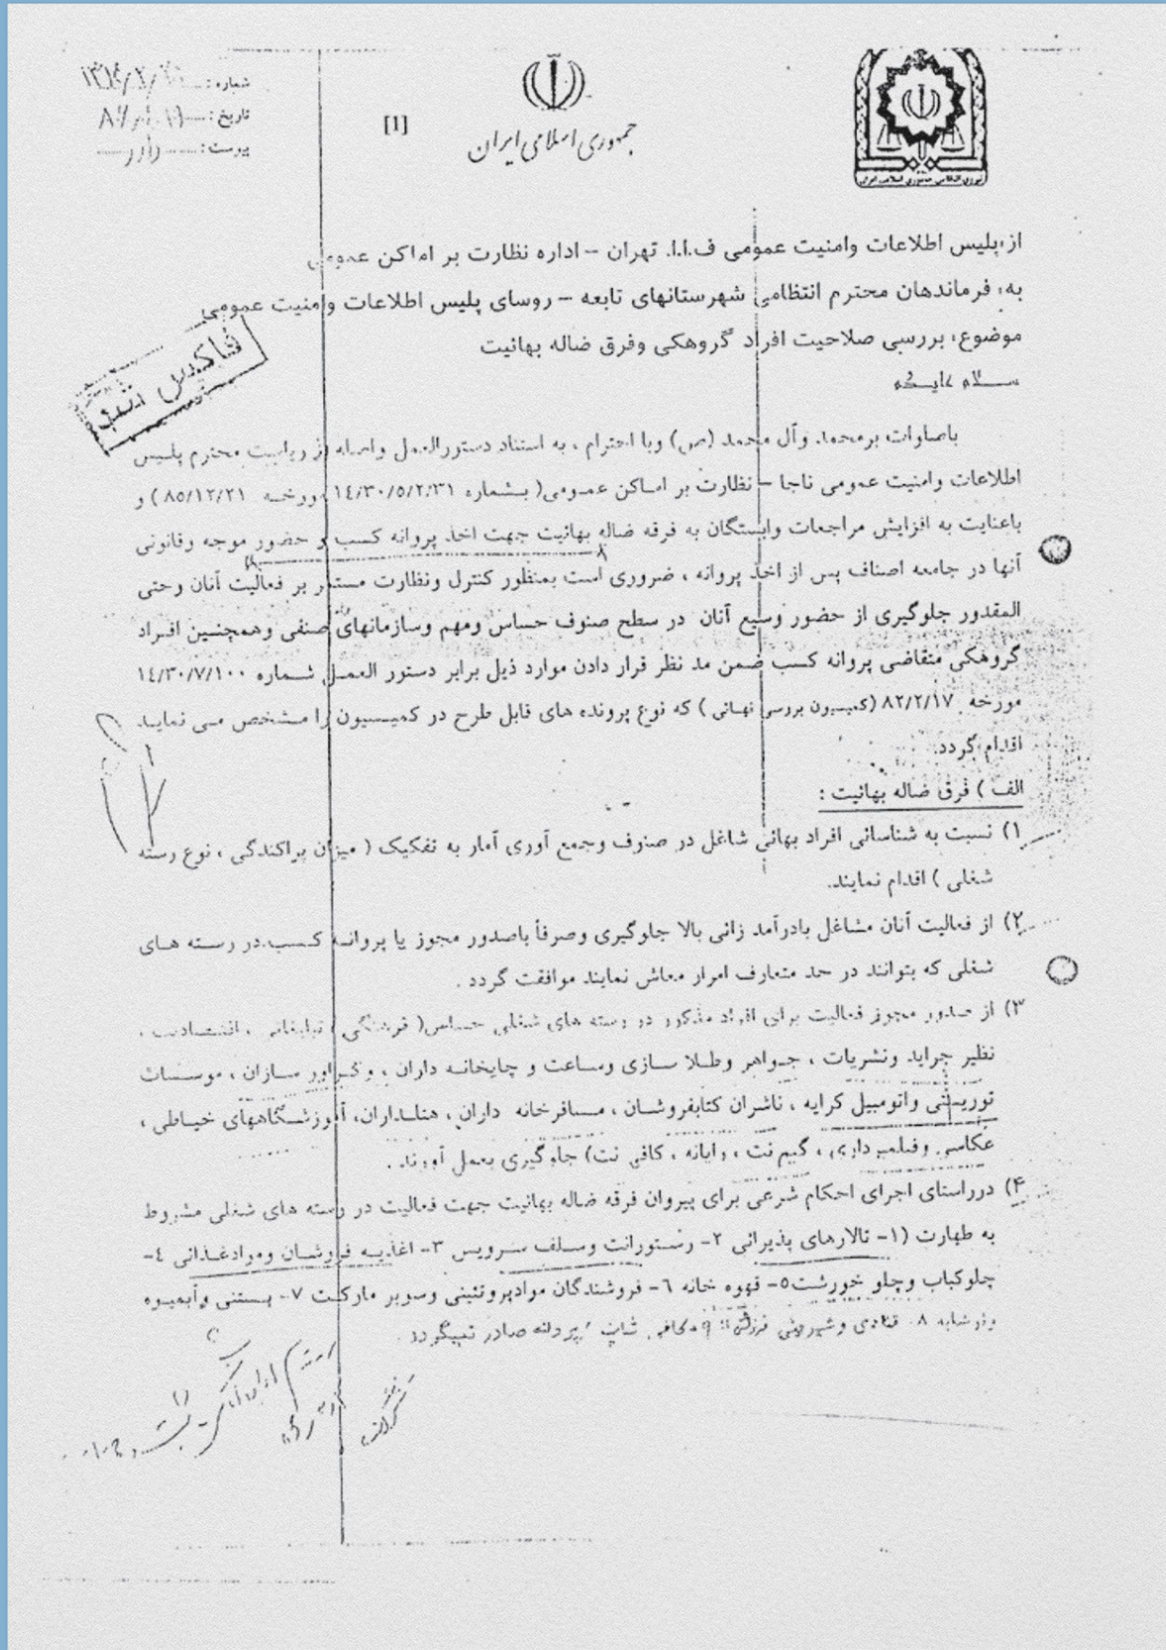 شماره :
تاریخ :
پیوست :
[1]
جمهوری اسلامی ایران
نیروی انتظامی جمهوری اسلامی ایران
از، پلیس اطلاعات وامنیت عمومی ف.ا.ا. تهران – اداره نظارت بر اماکن عمومی
به، فرماندهان محترم انتظامی شهرستانهای تابعه – روسای پلیس اطلاعات وامنیت عمومی
موضوع، بررسی صلاحیت افراد گروهکی وفرق ضاله بهائیت
سلام علیکم
فاکس شد
باصلوات برمحمد وآل محمد (ص) وبا احترام ، به استناد دستورالعمل واصله از ریاست محترم پلیس
اطلاعات وامنیت عمومی ناجا – نظارت بر اماکن عمومی( بشماره ١٤/٣٠/٥/٢/٣١ مورخه ٨٥/١٢/٢١ ) و
باعنایت به افزایش مراجعات وابستگان به فرقه ضاله بهائیت جهت اخذ پروانه کسب و حضور موجه وقانونی
آنها در جامعه اصناف پس از اخذ پروانه ، ضروری است بمنظور کنترل ونظارت مستمر بر فعالیت آنان وحتی
المقدور جلوگیری از حضور وسیع آنان در سطح صنوف حساس ومهم وسازمانهای صنفی وهمچنین افراد
گروهکی متقاضی پروانه کسب ضمن مد نظر قرار دادن موارد ذیل برابر دستور العمل شماره ١٤/٣٠/٧/١٠٠
مورخه ٨٢/٢/١٧ (کمیسیون بررسی نهائی ) که نوع پرونده های قابل طرح در کمیسیون را مشخص می نماید
اقدام گردد.
الف ) فرق ضاله بهائیت :
١) نسبت به شناسائی افراد بهائی شاغل در صنوف وجمع آوری آمار به تفکیک ( میزان پراکندگی ، نوع رسته
شغلی ) اقدام نمایند.
٢) از فعالیت آنان مشاغل بادرآمد زائی بالا جلوگیری وصرفأ باصدور مجوز یا پروانه کسب در رسته های
شغلی که بتوانند در حد متعارف امرار معاش نمایند موافقت گردد .
٣) از صدور مجوز فعالیت برای افراد مذکور در رسته های شغلی حساس( فرهنگی ، تبلیغاتی ، اقتصادی ،
نظیر جراید ونشریات ، جواهر وطلا سازی وساعت و چاپخانه داران ، وگراور سازان ، موسسات
توریستی واتومبیل کرایه ، ناشران کتابفروشان ، مسافرخانه داران ، هتلداران، آموزشگاههای خیاطی ،
عکاسی وفیلمبرداری ، گیم نت ، رایانه ، کافی نت) جلوگیری بعمل آورند .
۴) درراستای اجرای احکام شرعی برای پیروان فرقه ضاله بهائیت جهت فعالیت در رسته های شغلی مشروط
به طهارت (١- تالارهای پذیرائی ٢- رستورانت وسلف سرویس ٣- اغذیه فروشان وموادغذائی ٤-
چلوکباب وچلو خورشت٥- قهوه خانه ٦- فروشندگان موادپروتئینی وسوپر مارکت ٧- بستنی وآبمیوه
ونوشابه ٨- قنادی وشیرینی فروشی ٩- کافی شاپ ) پروانه صادر نمیگردد .